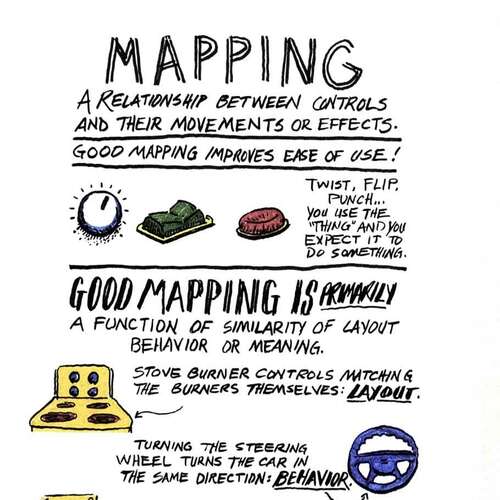 MAPPING
A RELATIONSHIP BETWEEN CONTROLS
AND THEIR MOVEMENTS OR EFFECTS.
GOOD MAPPING IMPROVES EASE OF USE!
TWIST, FLIP,
PUNCH...
YOU USE THE
"THING" AND YOU
EXPECT IT TO
DO SOMETHING.
GOOD MAPPING IS PRIMARILY
A FUNCTION OF SIMILARITY OF LAYOUT
BEHAVIOR OR MEANING.
STOVE BURNER CONTROLS MATCHING
THE BURNERS THEMSELVES: LAYOUT.
TURNING THE STEERING
WHEEL TURNS THE CAR IN
THE SAME DIRECTION: BEHAVIOR.